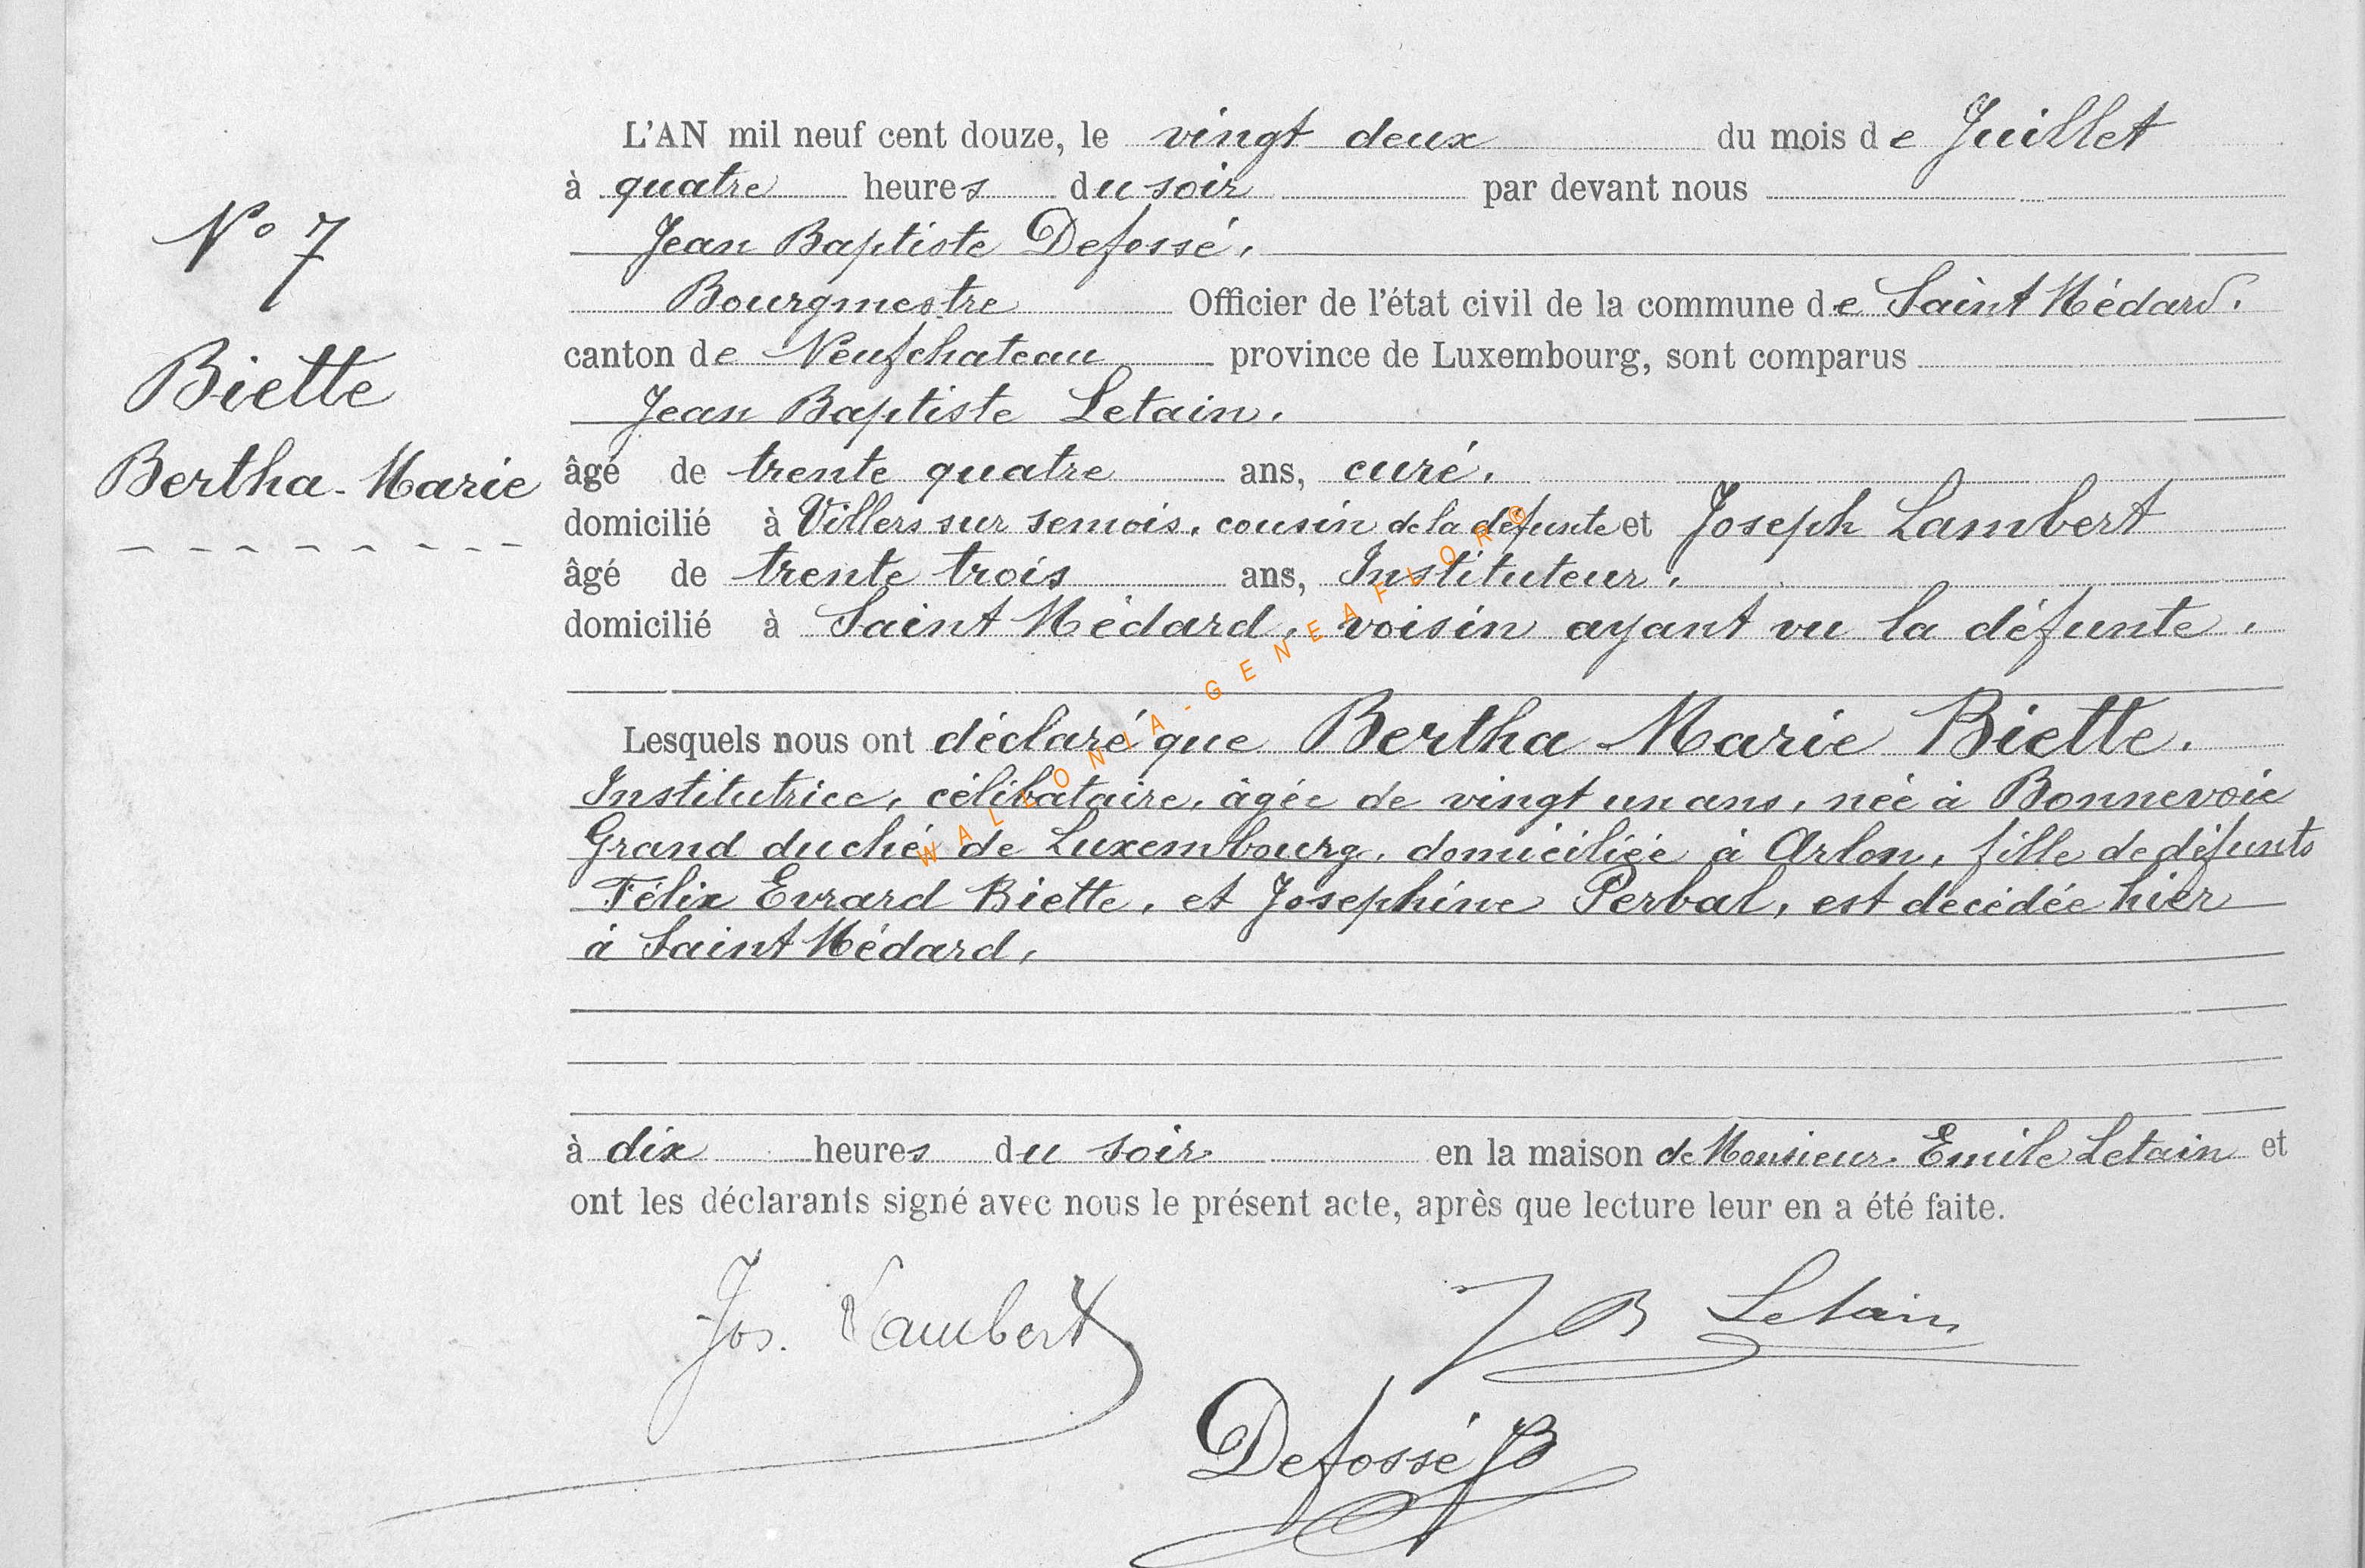 N° 7
Biette
Bertha-Marie
L'AN mil neuf cent douze, le vingt deux du mois de Juillet
à quatre heures du soir par devant nous
Jean Baptiste Defossé,
Bourgmestre Officier de l'état civil de la commune de Saint Médard,
canton de Neufchateau province de Luxembourg, sont comparus
Jean Baptiste Letain,
âgé de trente quatre ans, curé,
domicilié à Villers sur semois, cousin de la défunte et Joseph Lambert
âgé de trente trois ans, Instituteur,
domicilié à Saint Médard, voisin ayant vu la défunte,
Lesquels nous ont déclaré que Bertha Marie Biette,
Institutrice, célibataire, âgée de vingt un ans, née à Bonnevoie
Grand duché de Luxembourg, domiciliée à Arlon, fille de défunts
Félix Evrard Biette, et Joséphine Perbal, est décédée hier
à Saint Médard,
à dix heures du soir en la maison de Monsieur Emile Letain et
ont les déclarants signé avec nous le présent acte, après que lecture leur en a été faite.
Jos. Lambert
J B Letain
Defossé JB
WALLONIA-GENEAFLOR®